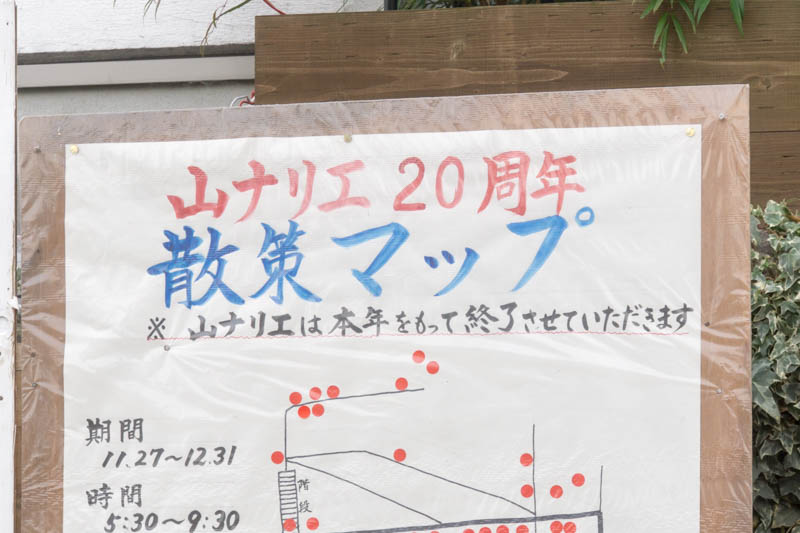 山ナリエ 20周年
散策マップ
※ 山ナリエは本年をもって終了させていただきます
期間
11.27〜12.31
時間
5:30〜9:30
階段